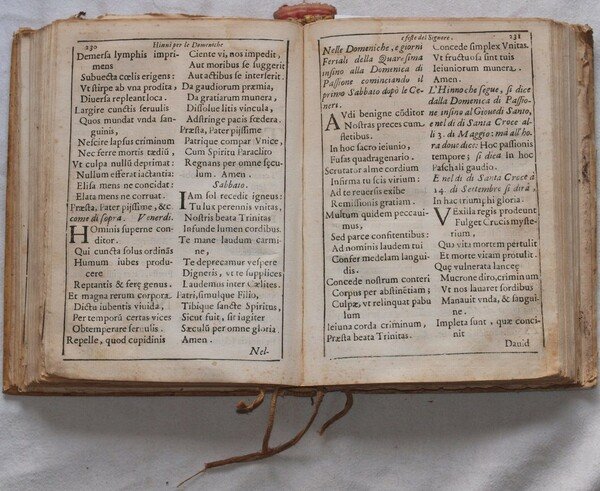 230 Hinni per le Domeniche
Demersa lymphis impri-
mens
Subuecta cœlis erigens:
Vt stirpe ab vna prodita,
Diuersa repleant loca.
Largire cunctis seruulis
Quos mundat vnda san-
guinis,
Nescire lapsus criminum
Nec ferre mortis tædiũ,
Vt culpa nullũ deprimat:
Nullum efferat iactantia:
Elisa mens ne concidat:
Elata mens ne corruat.
Præsta, Pater pijssime, &c
come di sopra. Venerdi.
HOminis superne con-
ditor.
Qui cuncta solus ordinãs
Humum iubes produ-
cere
Reptantis & feræ genus.
Et magna rerum corpora,
Dictu iubentis viuida,
Per temporũ certas vices
Obtemperare seruulis.
Repelle, quod cupidinis
Ciente vi, nos impedit,
Aut moribus se suggerit
Aut actibus se interserit.
Da gaudiorum præmia,
Da gratiarum munera,
Dissolue litis vincula,
Adstringe pacis fœdera.
Præsta, Pater pijssime
Patrique compar Vnice,
Cum Spiritu Paraclito
Regnans per omne sęcu-
lum. Amen.
Sabbato.
IAm sol recedit igneus:
Tu lux perennis vnitas,
Nostris beata Trinitas
Infunde lumen cordibus.
Te mane laudum carmi-
ne,
Te deprecamur vespere
Digneris, vt te supplices
Laudemus inter Cælites.
Patri, simulque Filio,
Tibique sancte Spiritus,
Sicut fuit, sit iugiter
Sæculũ per omne gloria
Amen.
Nel-
e feste del Signore. 231
Nelle Domeniche, e giorni
Feriali della Quaresima
insino alla Domenica di
Passione cominciando il
primo Sabbato dopò le Ce-
neri.
AVdi benigne cõditor
Nostras preces cum
fletibus.
In hoc sacro ieiunio,
Fusas quadragenario.
Scrutator alme cordium
Infirma tu scis virium:
Ad te reuersis exibe
Remissionis gratiam.
Multum quidem peccaui-
mus,
Sed parce confitentibus:
Ad nominis laudem tui
Confer medelam langui-
dis.
Concede nostrum conteri
Corpus per abstinẽtiam;
Culpæ, vt relinquat pabu
lum
Ieiuna corda criminum,
Præsta beata Trinitas.
Concede simplex Vnitas.
Vt fructuosa sint tuis
Ieiuniorum munera.
Amen.
L'Hinno che segue, si dice
dalla Domenica di Passio-
ne insino al Giouedi Santo,
e nel dì di Santa Croce al-
li 3. di Maggio: ma all'ho-
ra doue dice: Hoc passionis
tempore; si dica In hoc
Paschali gaudio.
E nel dì di Santa Croce à
14. di Settembre si dirà,
In hac triumphi gloria.
VExilla regis prodeunt
Fulget Crucis myste-
rium,
Quo vita mortem pertulit
Et morte vitam protulit.
Quę vulnerata lanceę
Mucrone diro, criminum
Vt nos lauaret sordibus
Manauit vnda, & sangui-
ne.
Impleta sunt, quæ conci-
nit
Dauid